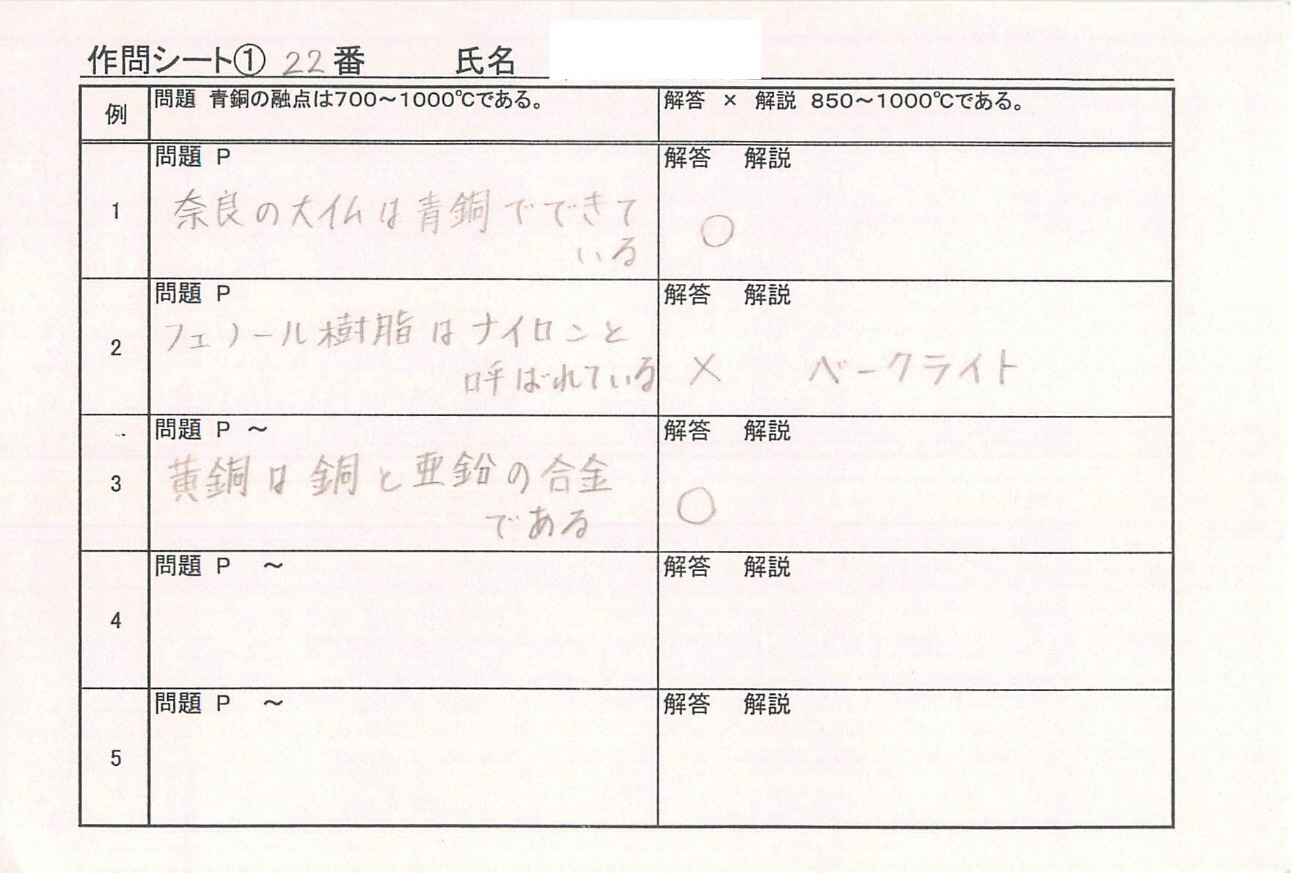 作問シート① 22番 氏名
例 問題 青銅の融点は700～1000℃である。 解答 × 解説 850～1000℃である。
1 問題 P 解答 解説
奈良の大仏は青銅でできて
いる
○
2 問題 P 解答 解説
フェノール樹脂はナイロンと
呼ばれている
× ベークライト
3 問題 P ～ 解答 解説
黄銅は銅と亜鉛の合金
である
○
4 問題 P ～ 解答 解説
5 問題 P ～ 解答 解説